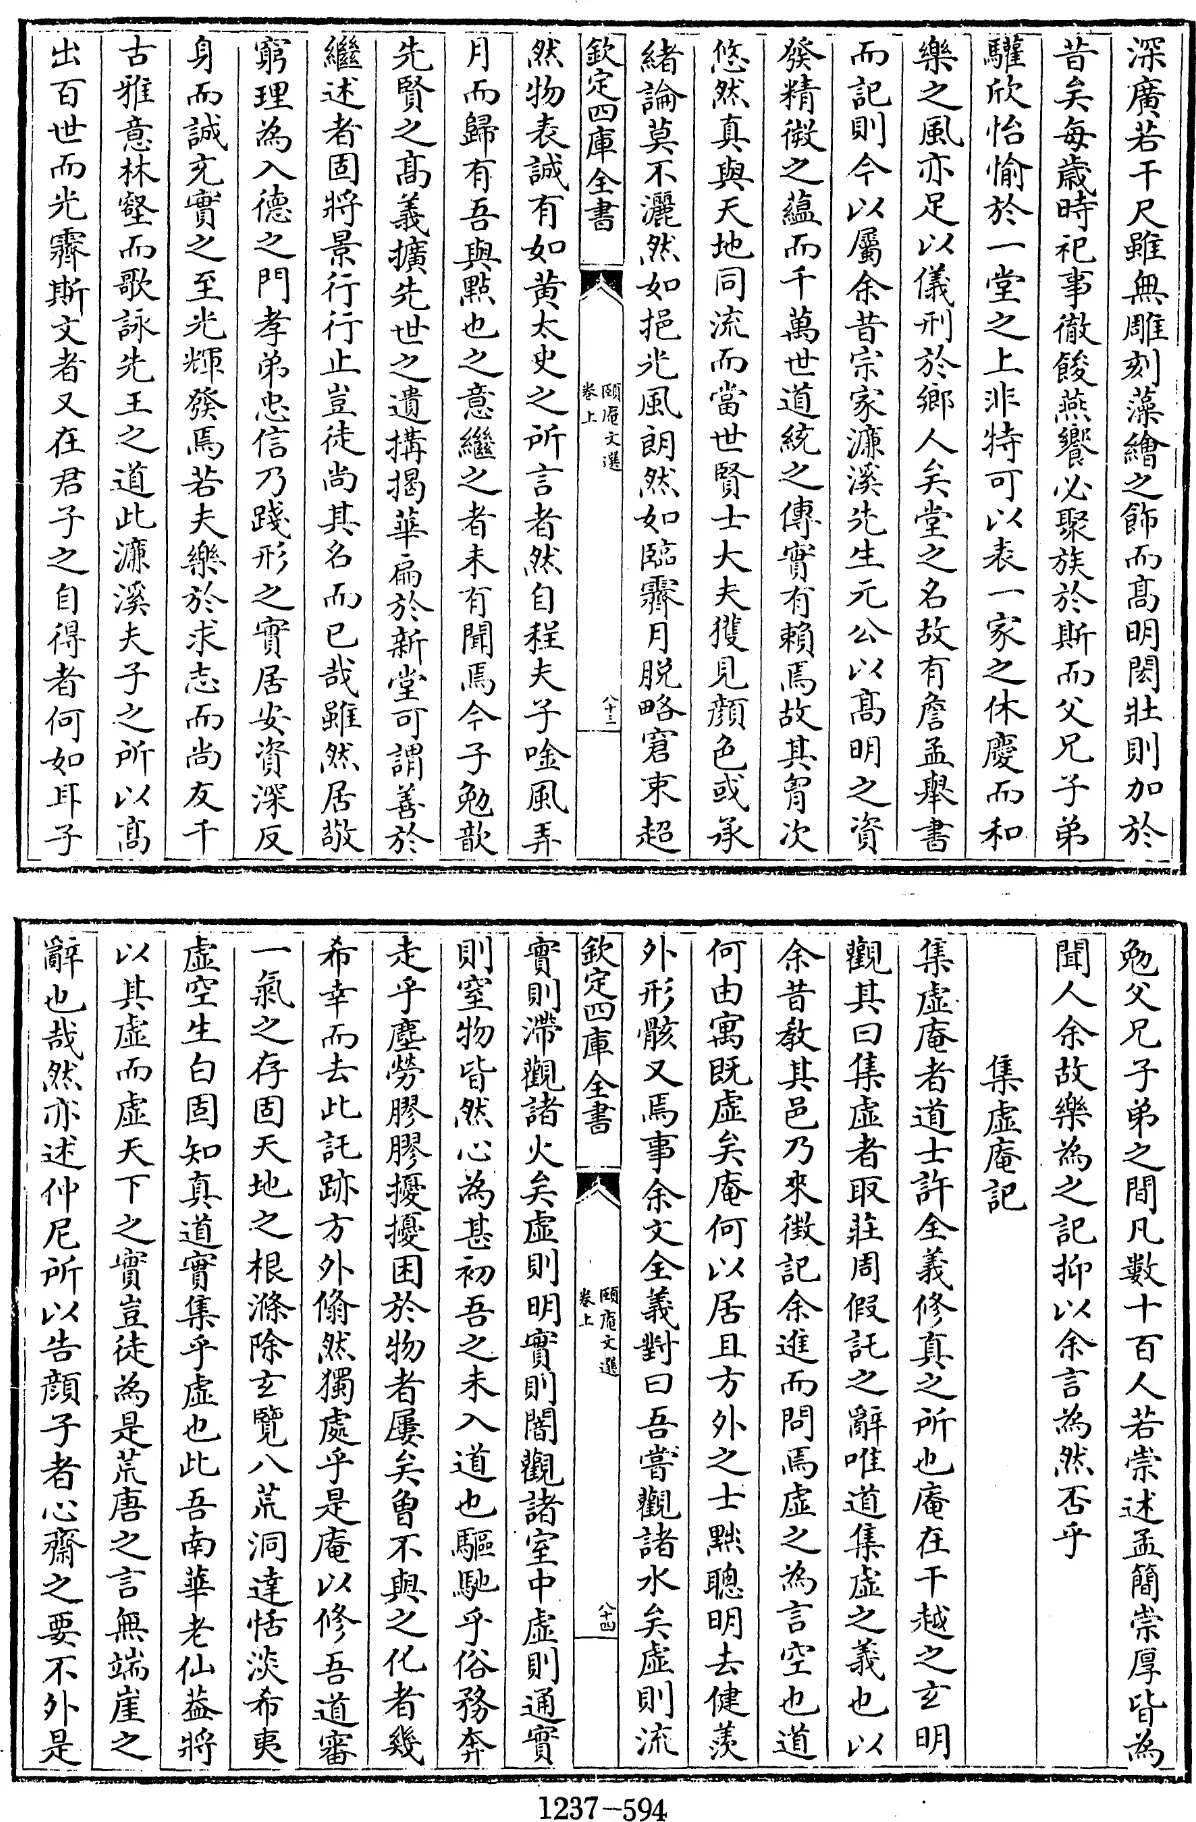 深廣若干尺雖無雕刻藻繪之飾而髙明閎壯則加於
昔矣每歲時祀事徹餕燕饗必聚族於斯而父兄子弟
驩欣怡愉於一堂之上非特可以表一家之休慶而和
樂之風亦足以儀刑於鄉人矣堂之名故有詹孟舉書
而記則今以屬余昔宗家濂溪先生元公以髙明之資
發精微之蘊而千萬世道統之傳實有賴焉故其胷次
悠然真與天地同流而當世賢士大夫獲見顔色或承
緒論莫不灑然如挹光風朗然如臨霽月脱略窘束超
欽定四庫全書
頤庵文選
卷上
八十三
然物表誠有如黄太史之所言者然自程夫子唫風弄
月而歸有吾與㸃也之意繼之者未有聞焉今子勉歆
先賢之髙義擴先世之遺搆揭華扁於新堂可謂善於
繼述者固將景行行止豈徒尚其名而已哉雖然居敬
窮理為入德之門孝弟忠信乃踐形之實居安資深反
身而誠充實之至光輝發焉若夫樂於求志而尚友千
古雅意林壑而歌詠先王之道此濂溪夫子之所以髙
出百世而光霽斯文者又在君子之自得者何如耳子
勉父兄子弟之間凡數十百人若崇述孟簡崇厚皆為
聞人余故樂為之記抑以余言為然否乎
集虛庵記
集虛庵者道士許全義修真之所也庵在干越之玄明
觀其曰集虛者取莊周假託之辭唯道集虛之義也以
余昔教其邑乃來徴記余進而問焉虛之為言空也道
何由寓既虛矣庵何以居且方外之士黜聰明去健羨
外形骸又焉事余文全義對曰吾嘗觀諸水矣虛則流
欽定四庫全書
頤庵文選
卷上
八十四
實則滯觀諸火矣虛則明實則闇觀諸室中虛則通實
則窒物皆然心為甚初吾之未入道也驅馳乎俗務奔
走乎塵勞膠膠擾擾困於物者屢矣曾不與之化者幾
希幸而去此託跡方外翛然獨處乎是庵以修吾道審
一氣之存固天地之根滌除玄覽八荒洞達恬淡希夷
虛空生白固知真道實集乎虛也此吾南華老仙葢將
以其虛而虛天下之實豈徒為是荒唐之言無端崖之
辭也哉然亦述仲尼所以告顔子者心齋之要不外是
1237-594